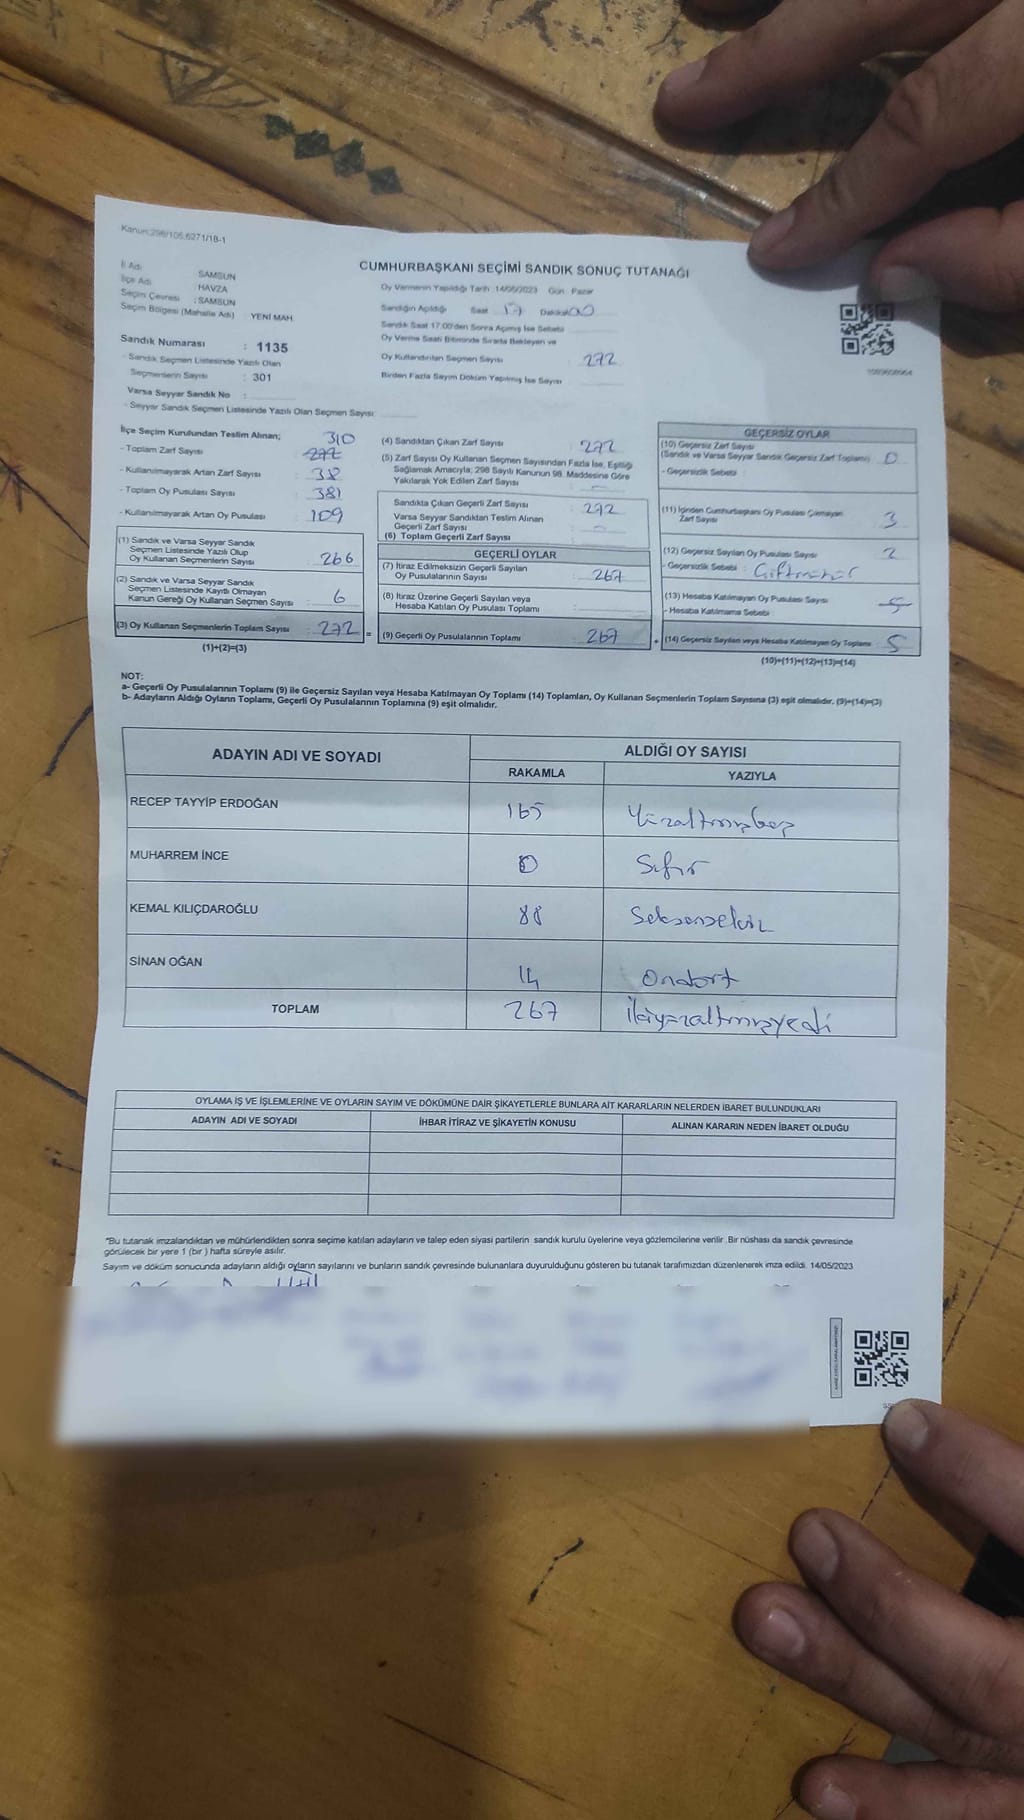 Kanun:298/105,6271/18-1
CUMHURBAŞKANI SEÇİMİ SANDIK SONUÇ TUTANAĞI
İl Adı : SAMSUN
İlçe Adı : HAVZA
Seçim Çevresi : SAMSUN
Seçim Bölgesi (Mahalle Adı) : YENİ MAH.
Sandık Numarası : 1135
- Sandık Seçmen Listesinde Yazılı Olan
Seçmenlerin Sayısı : 301
Varsa Seyyar Sandık No :
- Seyyar Sandık Seçmen Listesinde Yazılı Olan Seçmen Sayısı:
Oy Vermenin Yapıldığı Tarih :14/05/2023 Gün : Pazar
Sandığın Açıldığı Saat 17 Dakika 00
Sandık Saat 17:00'den Sonra Açılmış İse Sebebi
Oy Verme Saati Bitiminde Sırada Bekleyen ve
Oy Kullandırılan Seçmen Sayısı : 272
Birden Fazla Sayım Döküm Yapılmış İse Sayısı :
İlçe Seçim Kurulundan Teslim Alınan; 310
- Toplam Zarf Sayısı : 272
- Kullanılmayarak Artan Zarf Sayısı : 38
- Toplam Oy Pusulası Sayısı : 381
- Kullanılmayarak Artan Oy Pusulası : 109
(1) Sandık ve Varsa Seyyar Sandık
Seçmen Listesinde Yazılı Olup
Oy Kullanan Seçmenlerin Sayısı : 266
(2) Sandık ve Varsa Seyyar Sandık
Seçmen Listesinde Kayıtlı Olmayan
Kanun Gereği Oy Kullanan Seçmen Sayısı : 6
(3) Oy Kullanan Seçmenlerin Toplam Sayısı : 272 =
(1)+(2)=(3)
(4) Sandıktan Çıkan Zarf Sayısı : 272
(5) Zarf Sayısı Oy Kullanan Seçmen Sayısından Fazla İse, Eşitliği
Sağlamak Amacıyla; 298 Sayılı Kanunun 98. Maddesine Göre
Yakılarak Yok Edilen Zarf Sayısı : -
Sandıkta Çıkan Geçerli Zarf Sayısı : 272
Varsa Seyyar Sandıktan Teslim Alınan
Geçerli Zarf Sayısı : -
(6) Toplam Geçerli Zarf Sayısı :
GEÇERLİ OYLAR
(7) İtiraz Edilmeksizin Geçerli Sayılan
Oy Pusulalarının Sayısı : 267
(8) İtiraz Üzerine Geçerli Sayılan veya
Hesaba Katılan Oy Pusulası Toplamı :
(9) Geçerli Oy Pusulalarının Toplamı : 267 +
GEÇERSİZ OYLAR
(10) Geçersiz Zarf Sayısı
(Sandık ve Varsa Seyyar Sandık Geçersiz Zarf Toplamı) : 0
- Geçersizlik Sebebi :
(11) İçinden Cumhurbaşkanı Oy Pusulası Çıkmayan
Zarf Sayısı : 3
(12) Geçersiz Sayılan Oy Pusulası Sayısı : 2
- Geçersizlik Sebebi : Çiftmühür
(13) Hesaba Katılmayan Oy Pusulası Sayısı : 5
- Hesaba Katılmama Sebebi :
(14) Geçersiz Sayılan veya Hesaba Katılmayan Oy Toplamı : 5
(10)+(11)+(12)+(13)=(14)
NOT:
a- Geçerli Oy Pusulalarının Toplamı (9) ile Geçersiz Sayılan veya Hesaba Katılmayan Oy Toplamı (14) Toplamları, Oy Kullanan Seçmenlerin Toplam Sayısına (3) eşit olmalıdır. (9)+(14)=(3)
b- Adayların Aldığı Oyların Toplamı, Geçerli Oy Pusulalarının Toplamına (9) eşit olmalıdır.
ADAYIN ADI VE SOYADI
ALDIĞI OY SAYISI
RAKAMLA YAZIYLA
RECEP TAYYİP ERDOĞAN 165 Yüzaltmışbeş
MUHARREM İNCE 0 Sıfır
KEMAL KILIÇDAROĞLU 88 Seksensekiz
SİNAN OĞAN 14 Ondört
TOPLAM 267 İkiyüzaltmışyedi
OYLAMA İŞ VE İŞLEMLERİNE VE OYLARIN SAYIM VE DÖKÜMÜNE DAİR ŞİKAYETLERLE BUNLARA AİT KARARLARIN NELERDEN İBARET BULUNDUKLARI
ADAYIN ADI VE SOYADI İHBAR İTİRAZ VE ŞİKAYETİN KONUSU ALINAN KARARIN NEDEN İBARET OLDUĞU
*Bu tutanak imzalandıktan ve mühürlendikten sonra seçime katılan adayların ve talep eden siyasi partilerin sandık kurulu üyelerine veya gözlemcilerine verilir .Bir nüshası da sandık çevresinde
görülecek bir yere 1 (bir ) hafta süreyle asılır.
Sayım ve döküm sonucunda adayların aldığı oyların sayılarını ve bunların sandık çevresinde bulunanlara duyurulduğunu gösteren bu tutanak tarafımızdan düzenlenerek imza edildi. 14/05/2023